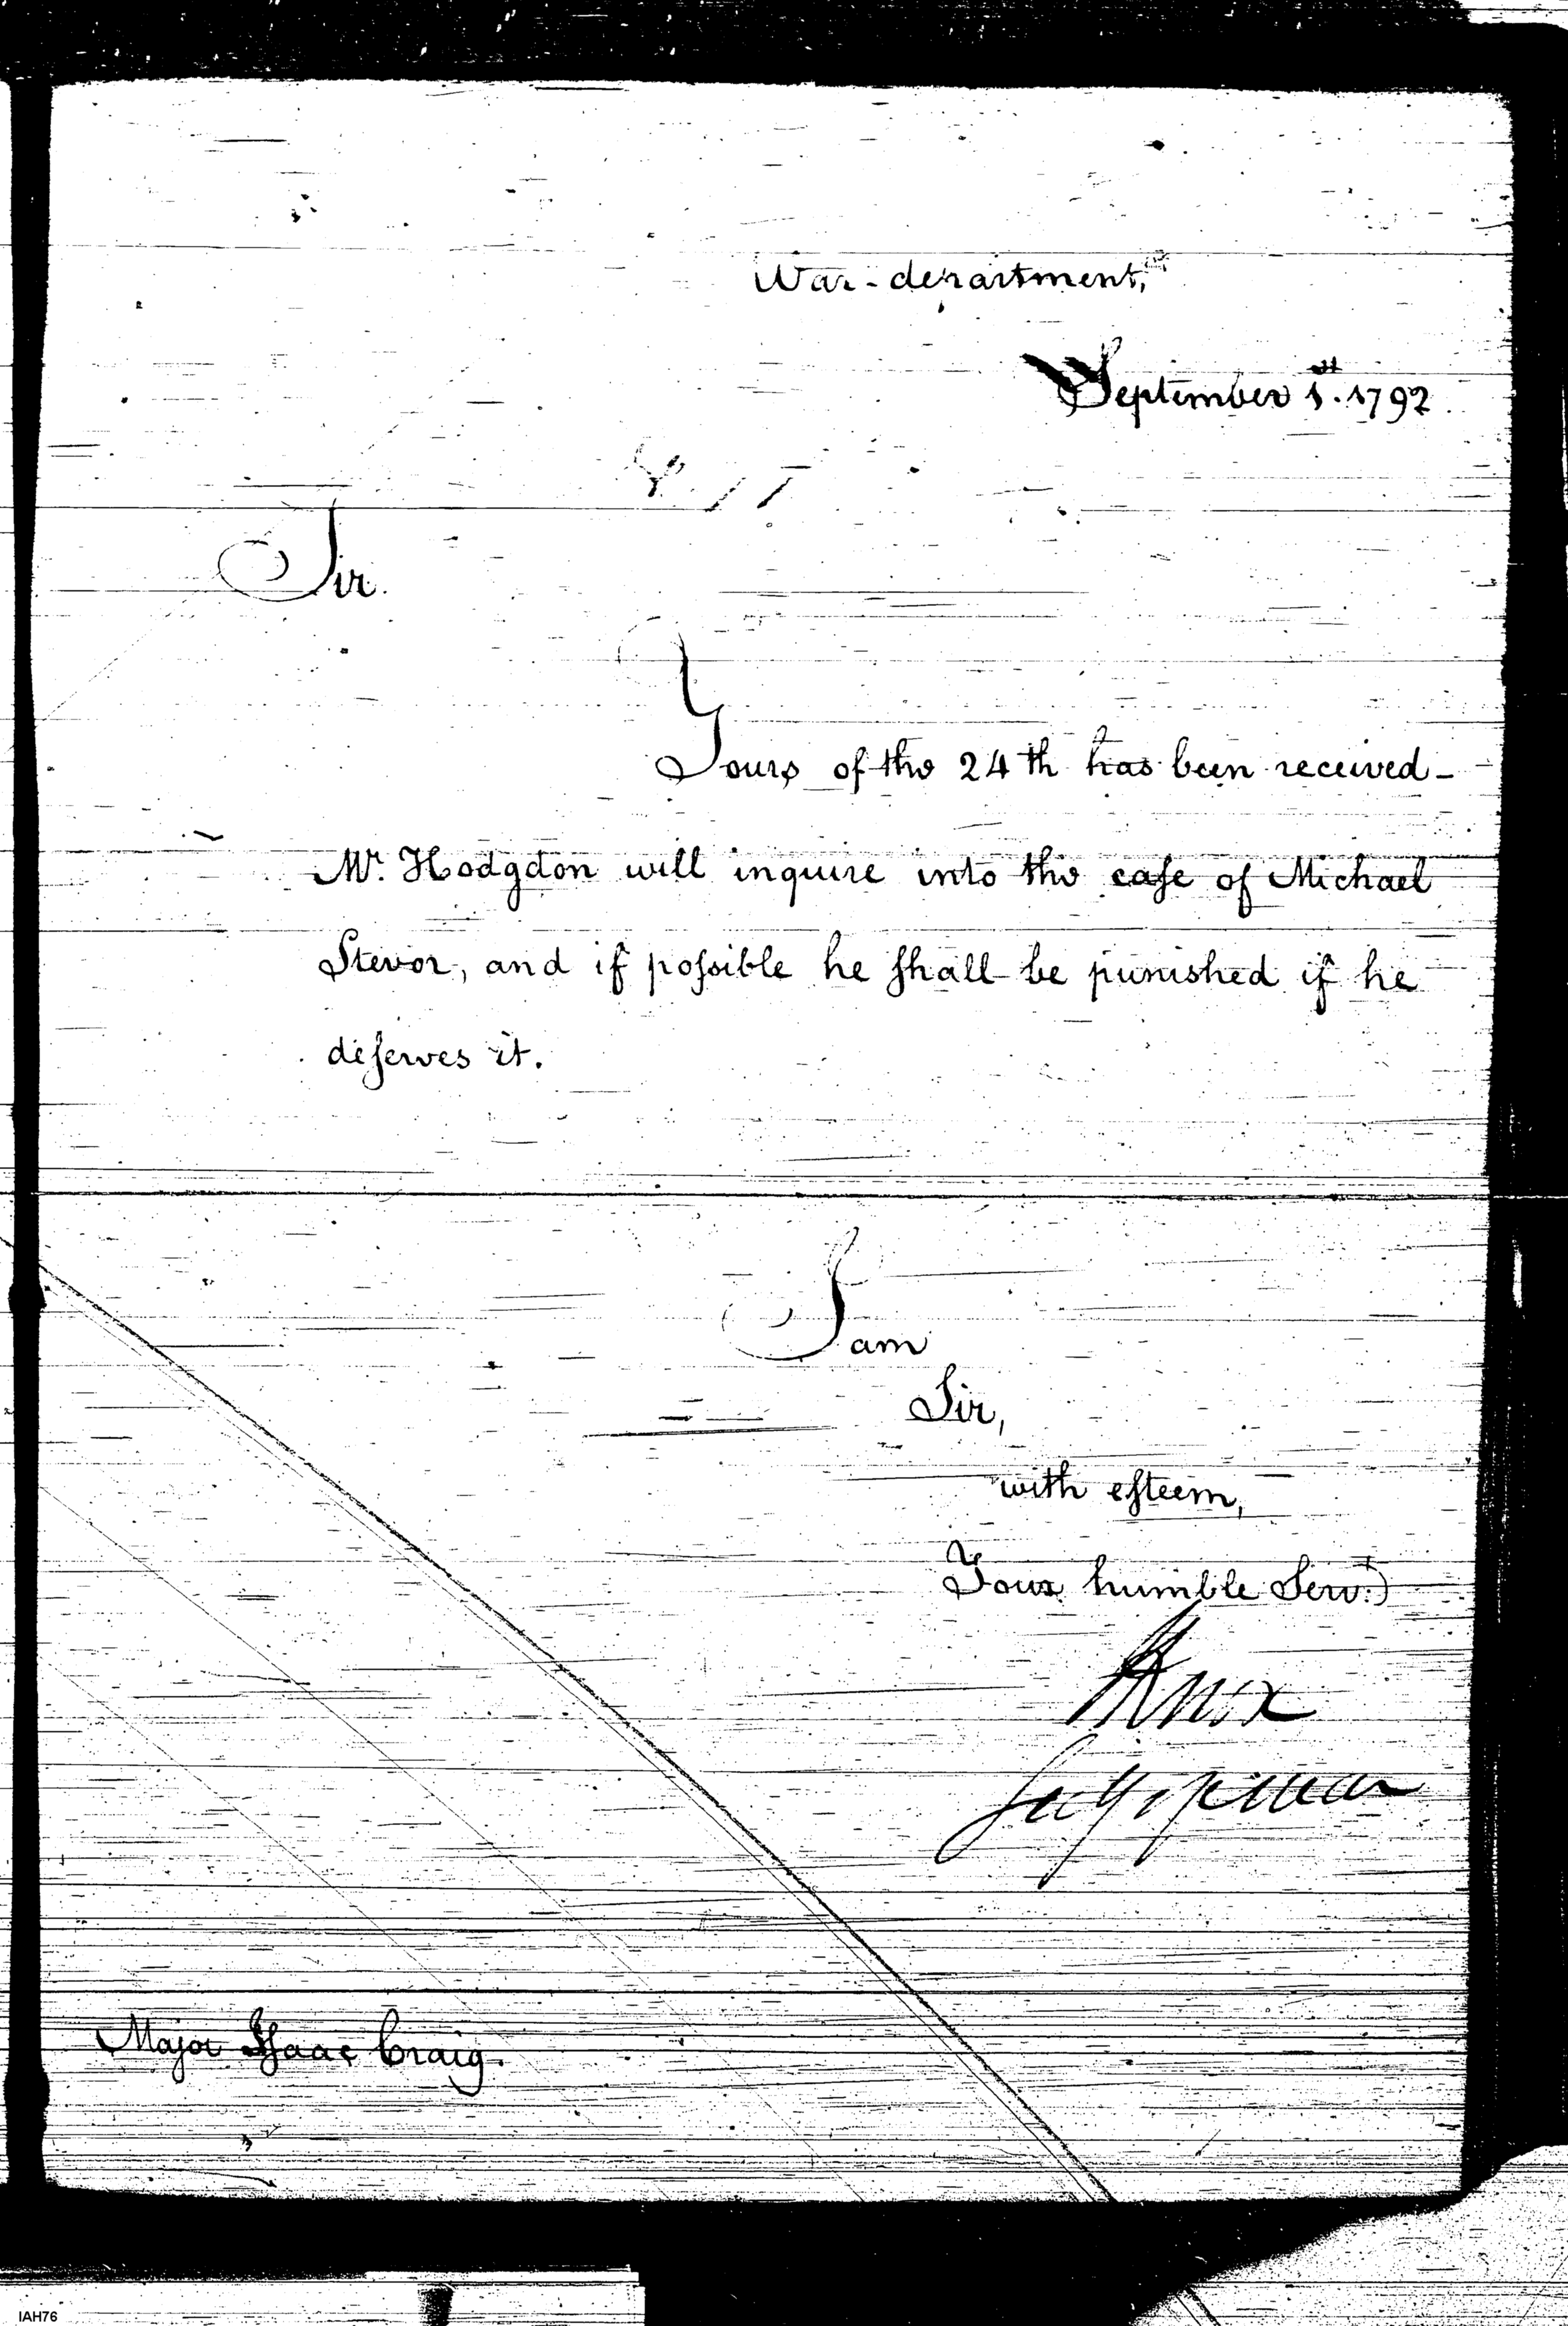 War-department,
September 1st. 1792
Sir.
Yours of the 24th has been received-
Mr. Hodgdon will inquire into the caſe of Michael
Stevor, and if poſsible he ſhall be punished if he
deſerves it.
I am
Sir,
with eſteem,
Your humble Servt.
HKnox
Secy of war
Major Iſaac Craig.
IAH76